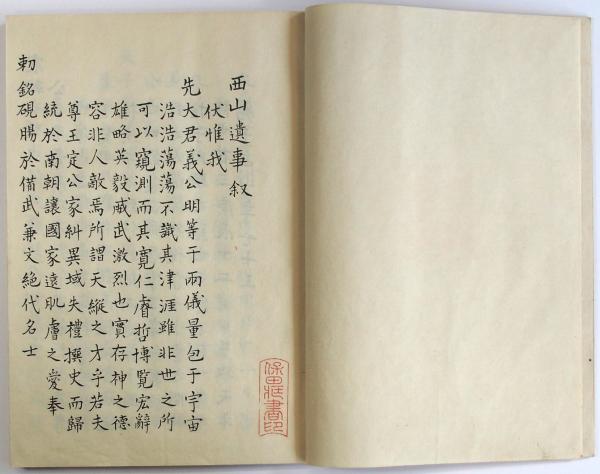 西山遺事叙
伏惟我
先大君義公明等于兩儀量包于宇宙
浩浩蕩蕩不識其津涯雖非世之所
可以窺測而其寬仁睿哲博覧宏辭
雄略英毅威武激烈也實存神之德
容非人敵焉所謂天縱之才乎若夫
尊王定公家糾異域失禮撰史而歸
統於南朝讓國家遠肌膚之愛奉
勅銘硯賜於備武兼文絶代名士
保田蔵書印